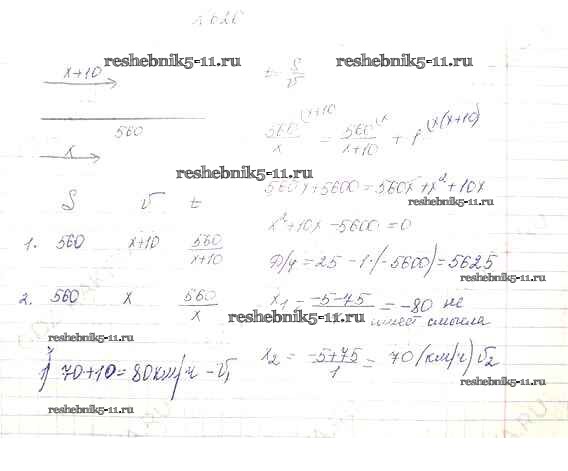 № 626
x+10
reshebnik5-11.ru
t = S/v
reshebnik5-11.ru
560
560/x (x+10 = 560/x+10 (x + 1 (x(x+10)
x
reshebnik5-11.ru
560x+5600 = 560x+x²+10x
reshebnik5-11.ru
x²+10x-5600 = 0
S v t
1. 560 x+10 560/x+10
Д/4 = 25 - 1·(-5600) = 5625
reshebnik5-11.ru
2. 560 x 560/x
x₁ = -5-75/1 = -80 не
имеет смысла
reshebnik5-11.ru
reshebnik5-11.ru
1) 70+10 = 80 км/ч - v₁
x₂ = -5+75/1 = 70 (км/ч) v₂
reshebnik5-11.ru
reshebnik5-11.ru